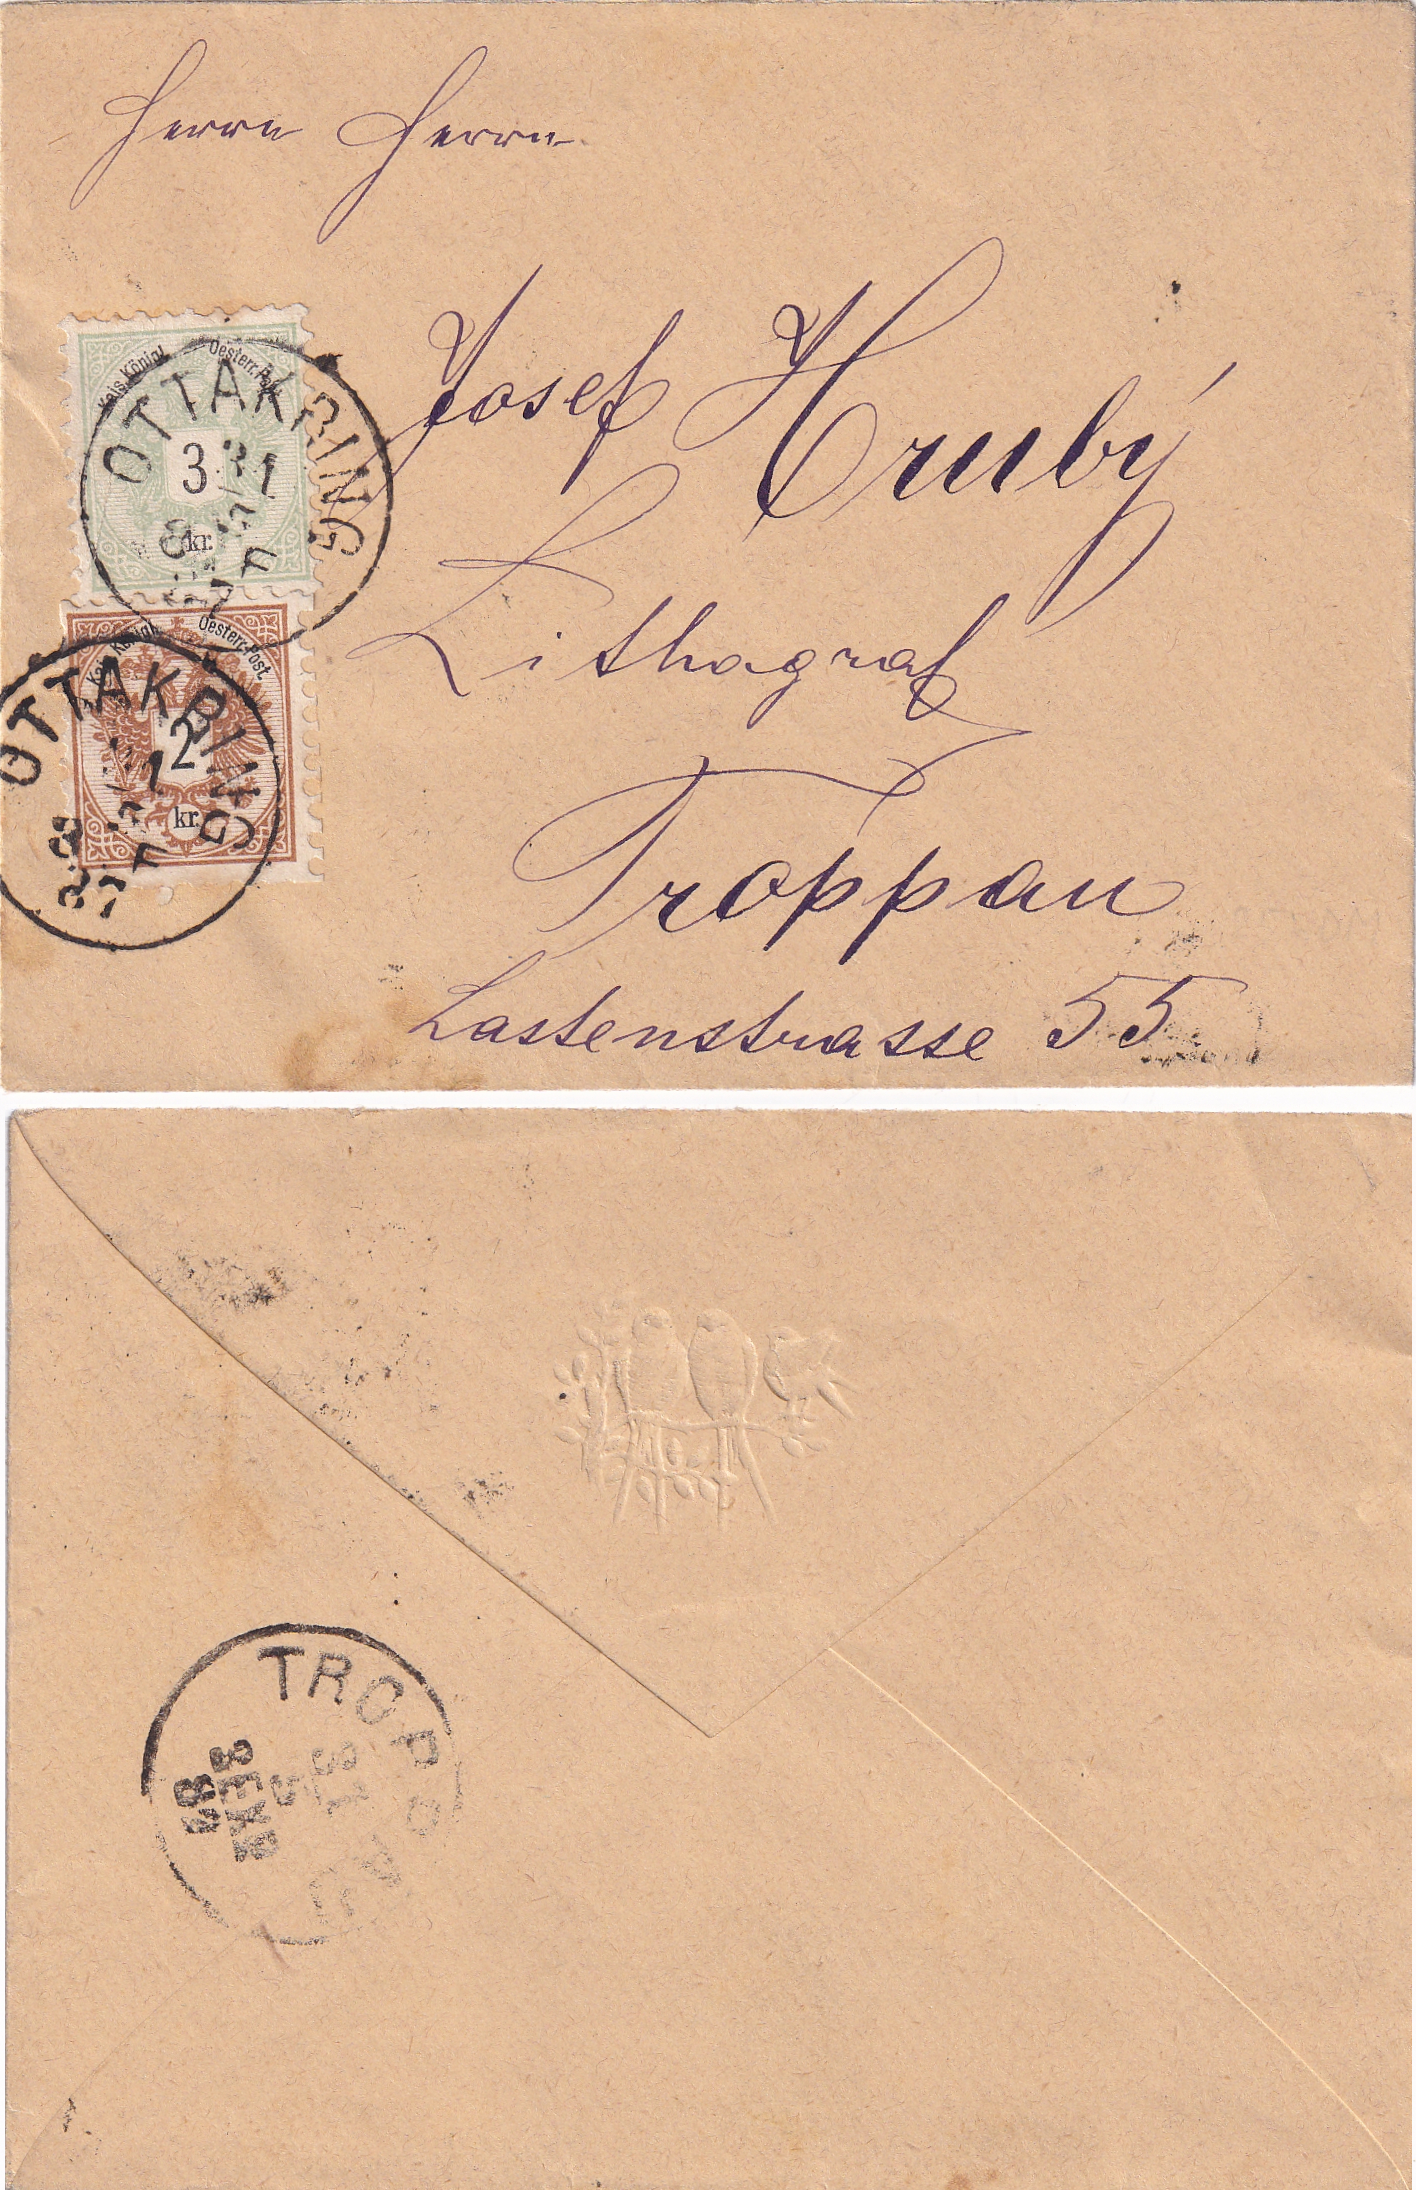 Herrn Herrn
Josef Hrubý
Lithograf
Troppau
Lastenstrasse 55
Kais. Königl. Oesterr. Post.
3
kr.
OTTAKRING
31
5
Kais. Königl. Oesterr. Post.
2
kr.
OTTAKRING
31
5
TROPPAU
31
5
87